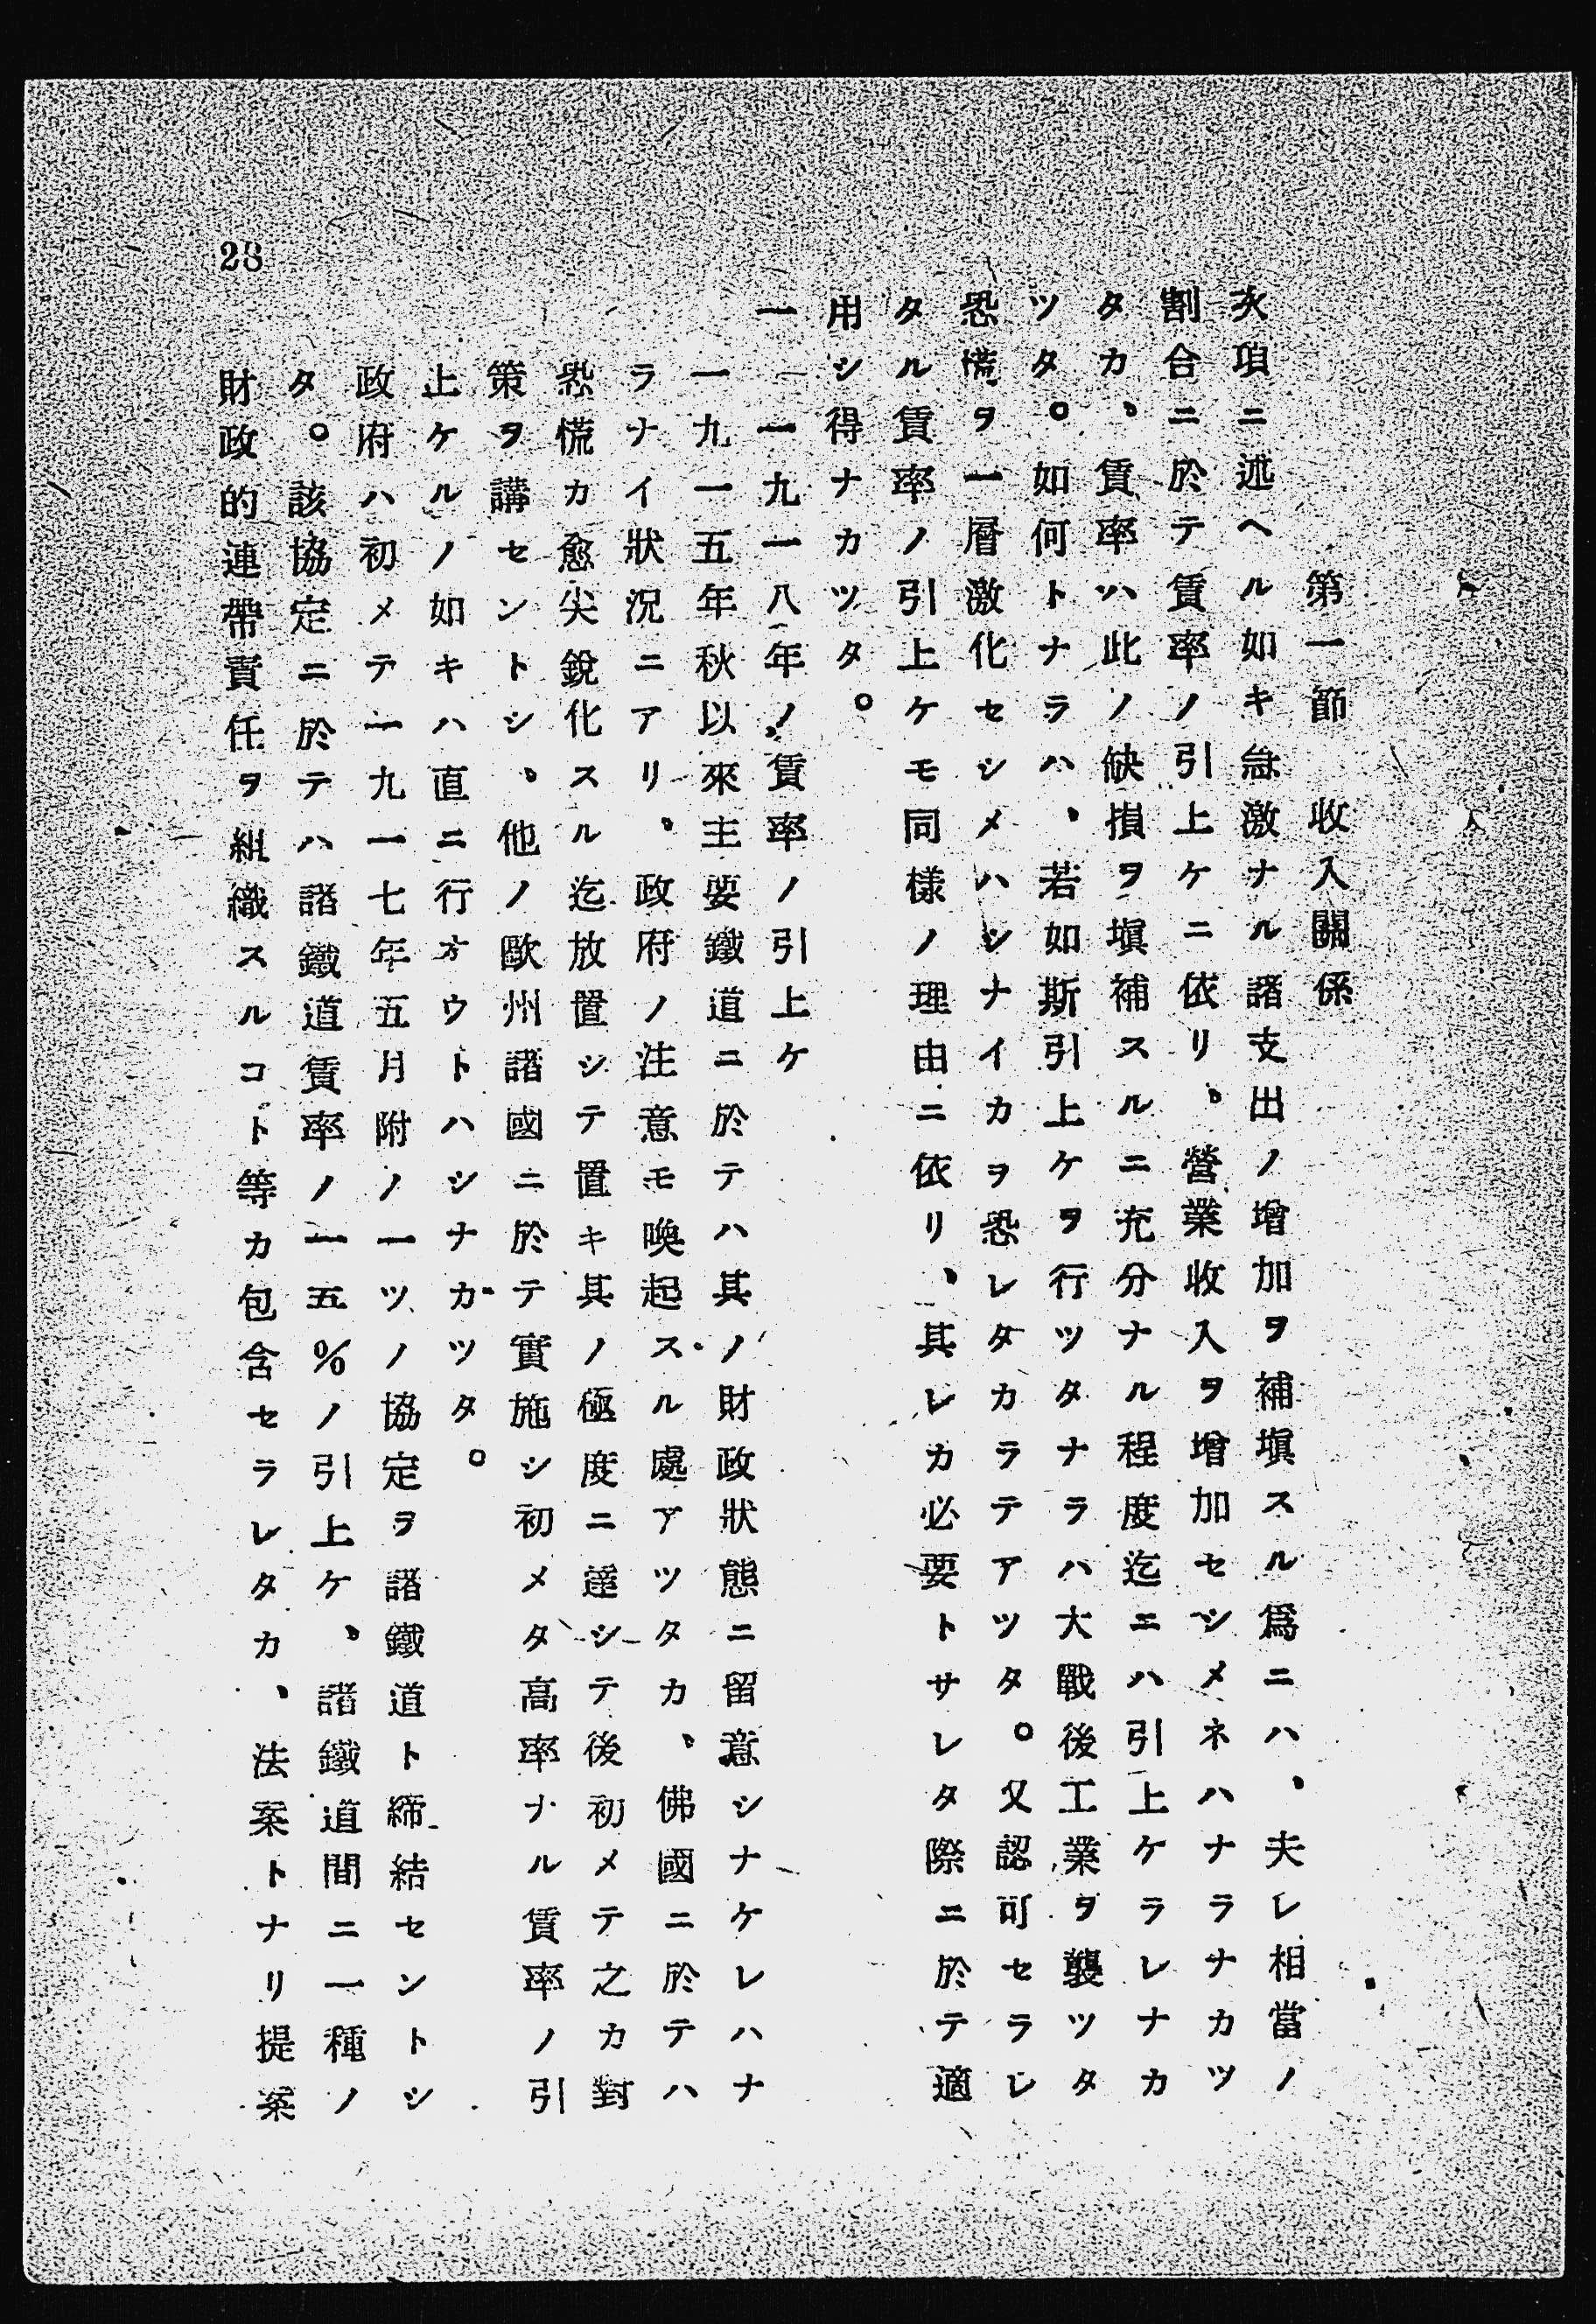 第一節　收入關係
次項ニ述ヘル如キ急激ナル諸支出ノ增加ヲ補塡スル爲ニハ、夫レ相當ノ
割合ニ於テ賃率ノ引上ケニ依リ、營業收入ヲ增加セシメネハナラナカツ
タカ、賃率ハ此ノ缺損ヲ塡補スルニ充分ナル程度迄ニハ引上ケラレナカ
ツタ。如何トナラハ、若如斯引上ケヲ行ツタナラハ大戰後工業ヲ襲ツタ
恐慌ヲ一層激化セシメハシナイカヲ恐レタカラテアツタ。又認可セラレ
タル賃率ノ引上ケモ同樣ノ理由ニ依リ、其レカ必要トサレタ際ニ於テ適
用シ得ナカツタ。
一　一九一八年ノ賃率ノ引上ケ
一九一五年秋以來主要鐵道ニ於テハ其ノ財政狀態ニ留意シナケレハナ
ラナイ狀況ニアリ、政府ノ注意モ喚起スル處アツタカ、佛國ニ於テハ
恐慌カ愈尖銳化スル迄放置シテ置キ其ノ極度ニ達シテ後初メテ之カ對
策ヲ講セントシ、他ノ歐州諸國ニ於テ實施シ初メタ高率ナル賃率ノ引
上ケルノ如キハ直ニ行オウトハシナカツタ。
政府ハ初メテ一九一七年五月附ノ一ツノ協定ヲ諸鐵道ト締結セントシ
タ。該協定ニ於テハ諸鐵道賃率ノ一五％ノ引上ケ、諸鐵道間ニ一種ノ
財政的連帶責任ヲ組織スルコト等カ包含セラレタカ、法案トナリ提案
28